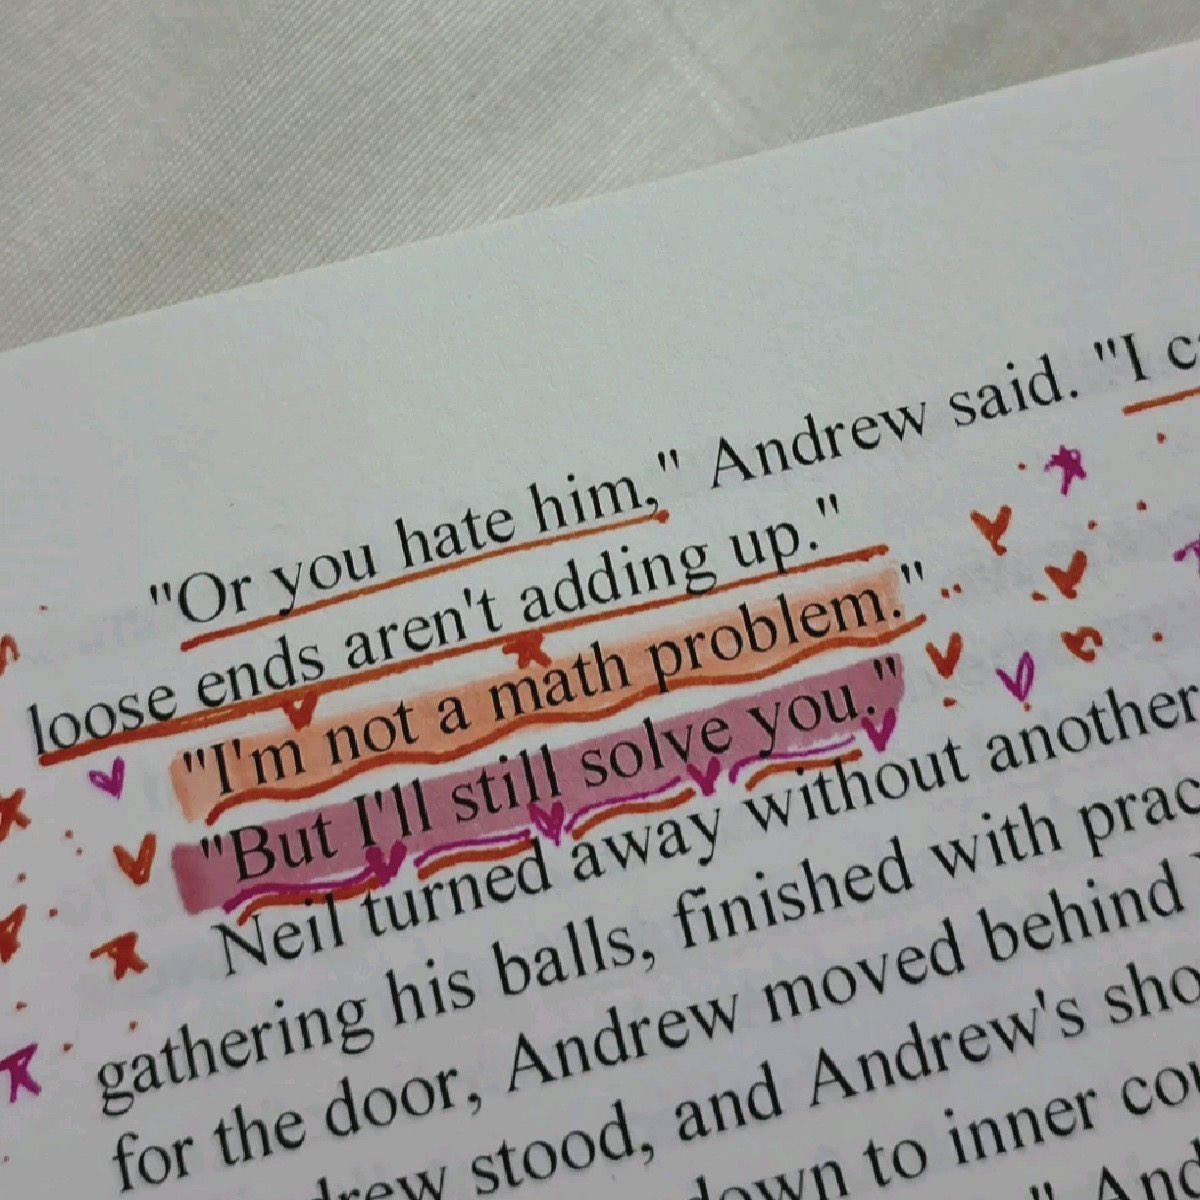 "Or you hate him," Andrew said. "I
loose ends aren't adding up."
"I'm not a math problem."
"But I'll still solve you."
Neil turned away without another
gathering his balls, finished with
for the door, Andrew moved behind
stood, and Andrew's
to inner